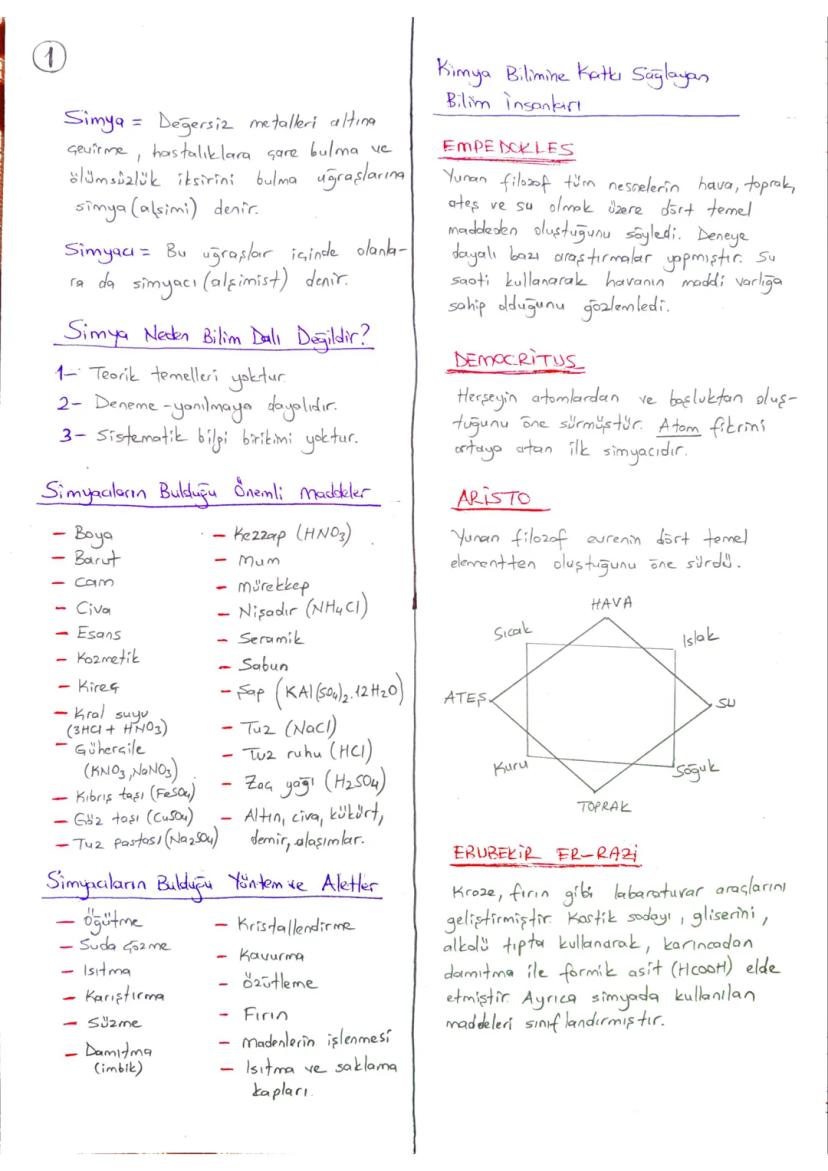 1
Simya = Değersiz metalleri altına
çevirme, hastalıklara çare bulma ve
ölümsüzlük iksirini bulma uğraşlarına
simya (alşimi) denir.
Simyacı = Bu uğraşlar içinde olanla-
ra da simyacı (alşimist) denir.
Simya Neden Bilim Dalı Değildir?
1- Teorik temelleri yoktur.
2- Deneme-yanılmaya dayalıdır.
3- Sistematik bilgi birikimi yoktur.
Simyacıların Bulduğu Önemli Maddeler
- Boya
- Barut
- Cam
- Civa
- Esans
- Kozmetik
- Kireç
- Kral suyu
(3HCl + HNO3)
- Gühercile
(KNO3, NaNO3)
- Kıbrıs taşı (FeSO4)
- Göz taşı (CuSO4)
- Tuz pastası (Na2SO4)
- Kezzap (HNO3)
- Mum
- Mürekkep
- Nişadır (NH4Cl)
- Seramik
- Sabun
- Şap (KAl(SO4)2.12H2O)
- Tuz (NaCl)
- Tuz ruhu (HCl)
- Zaç yağı (H2SO4)
- Altın, civa, kükürt,
demir, alaşımlar.
Simyacıların Bulduğu Yöntem ve Aletler
- Öğütme
- Suda Çözme
- Isıtma
- Karıştırma
- Süzme
- Damıtma
(imbik)
- Kristallendirme
- Kavurma
- Özütleme
- Fırın
- Madenlerin işlenmesi
- Isıtma ve saklama
kapları.
Kimya Bilimine Katkı Sağlayan
Bilim İnsanları
EMPEDOKLES
Yunan filozof tüm nesnelerin hava, toprak,
ateş ve su olmak üzere dört temel
maddeden oluştuğunu söyledi. Deneye
dayalı bazı araştırmalar yapmıştır. Su
saati kullanarak havanın maddi varlığa
sahip olduğunu gözlemledi.
DEMOCRİTUS
Herşeyin atomlardan ve boşluktan oluş-
tuğunu öne sürmüştür. Atom fikrini
ortaya atan ilk simyacıdır.
ARİSTO
Yunan filozof evrenin dört temel
elementten oluştuğunu öne sürdü.
HAVA
Sıcak
Islak
ATEŞ
SU
Kuru
Soğuk
TOPRAK
EBUBEKİR ER-RAZİ
Kroze, fırın gibi labaratuvar araçlarını
geliştirmiştir. Kostik sodayı, gliserini,
alkolü tıpta kullanarak, karıncadan
damıtma ile formik asit (HCOOH) elde
etmiştir. Ayrıca simyada kullanılan
maddeleri sınıflandırmıştır.